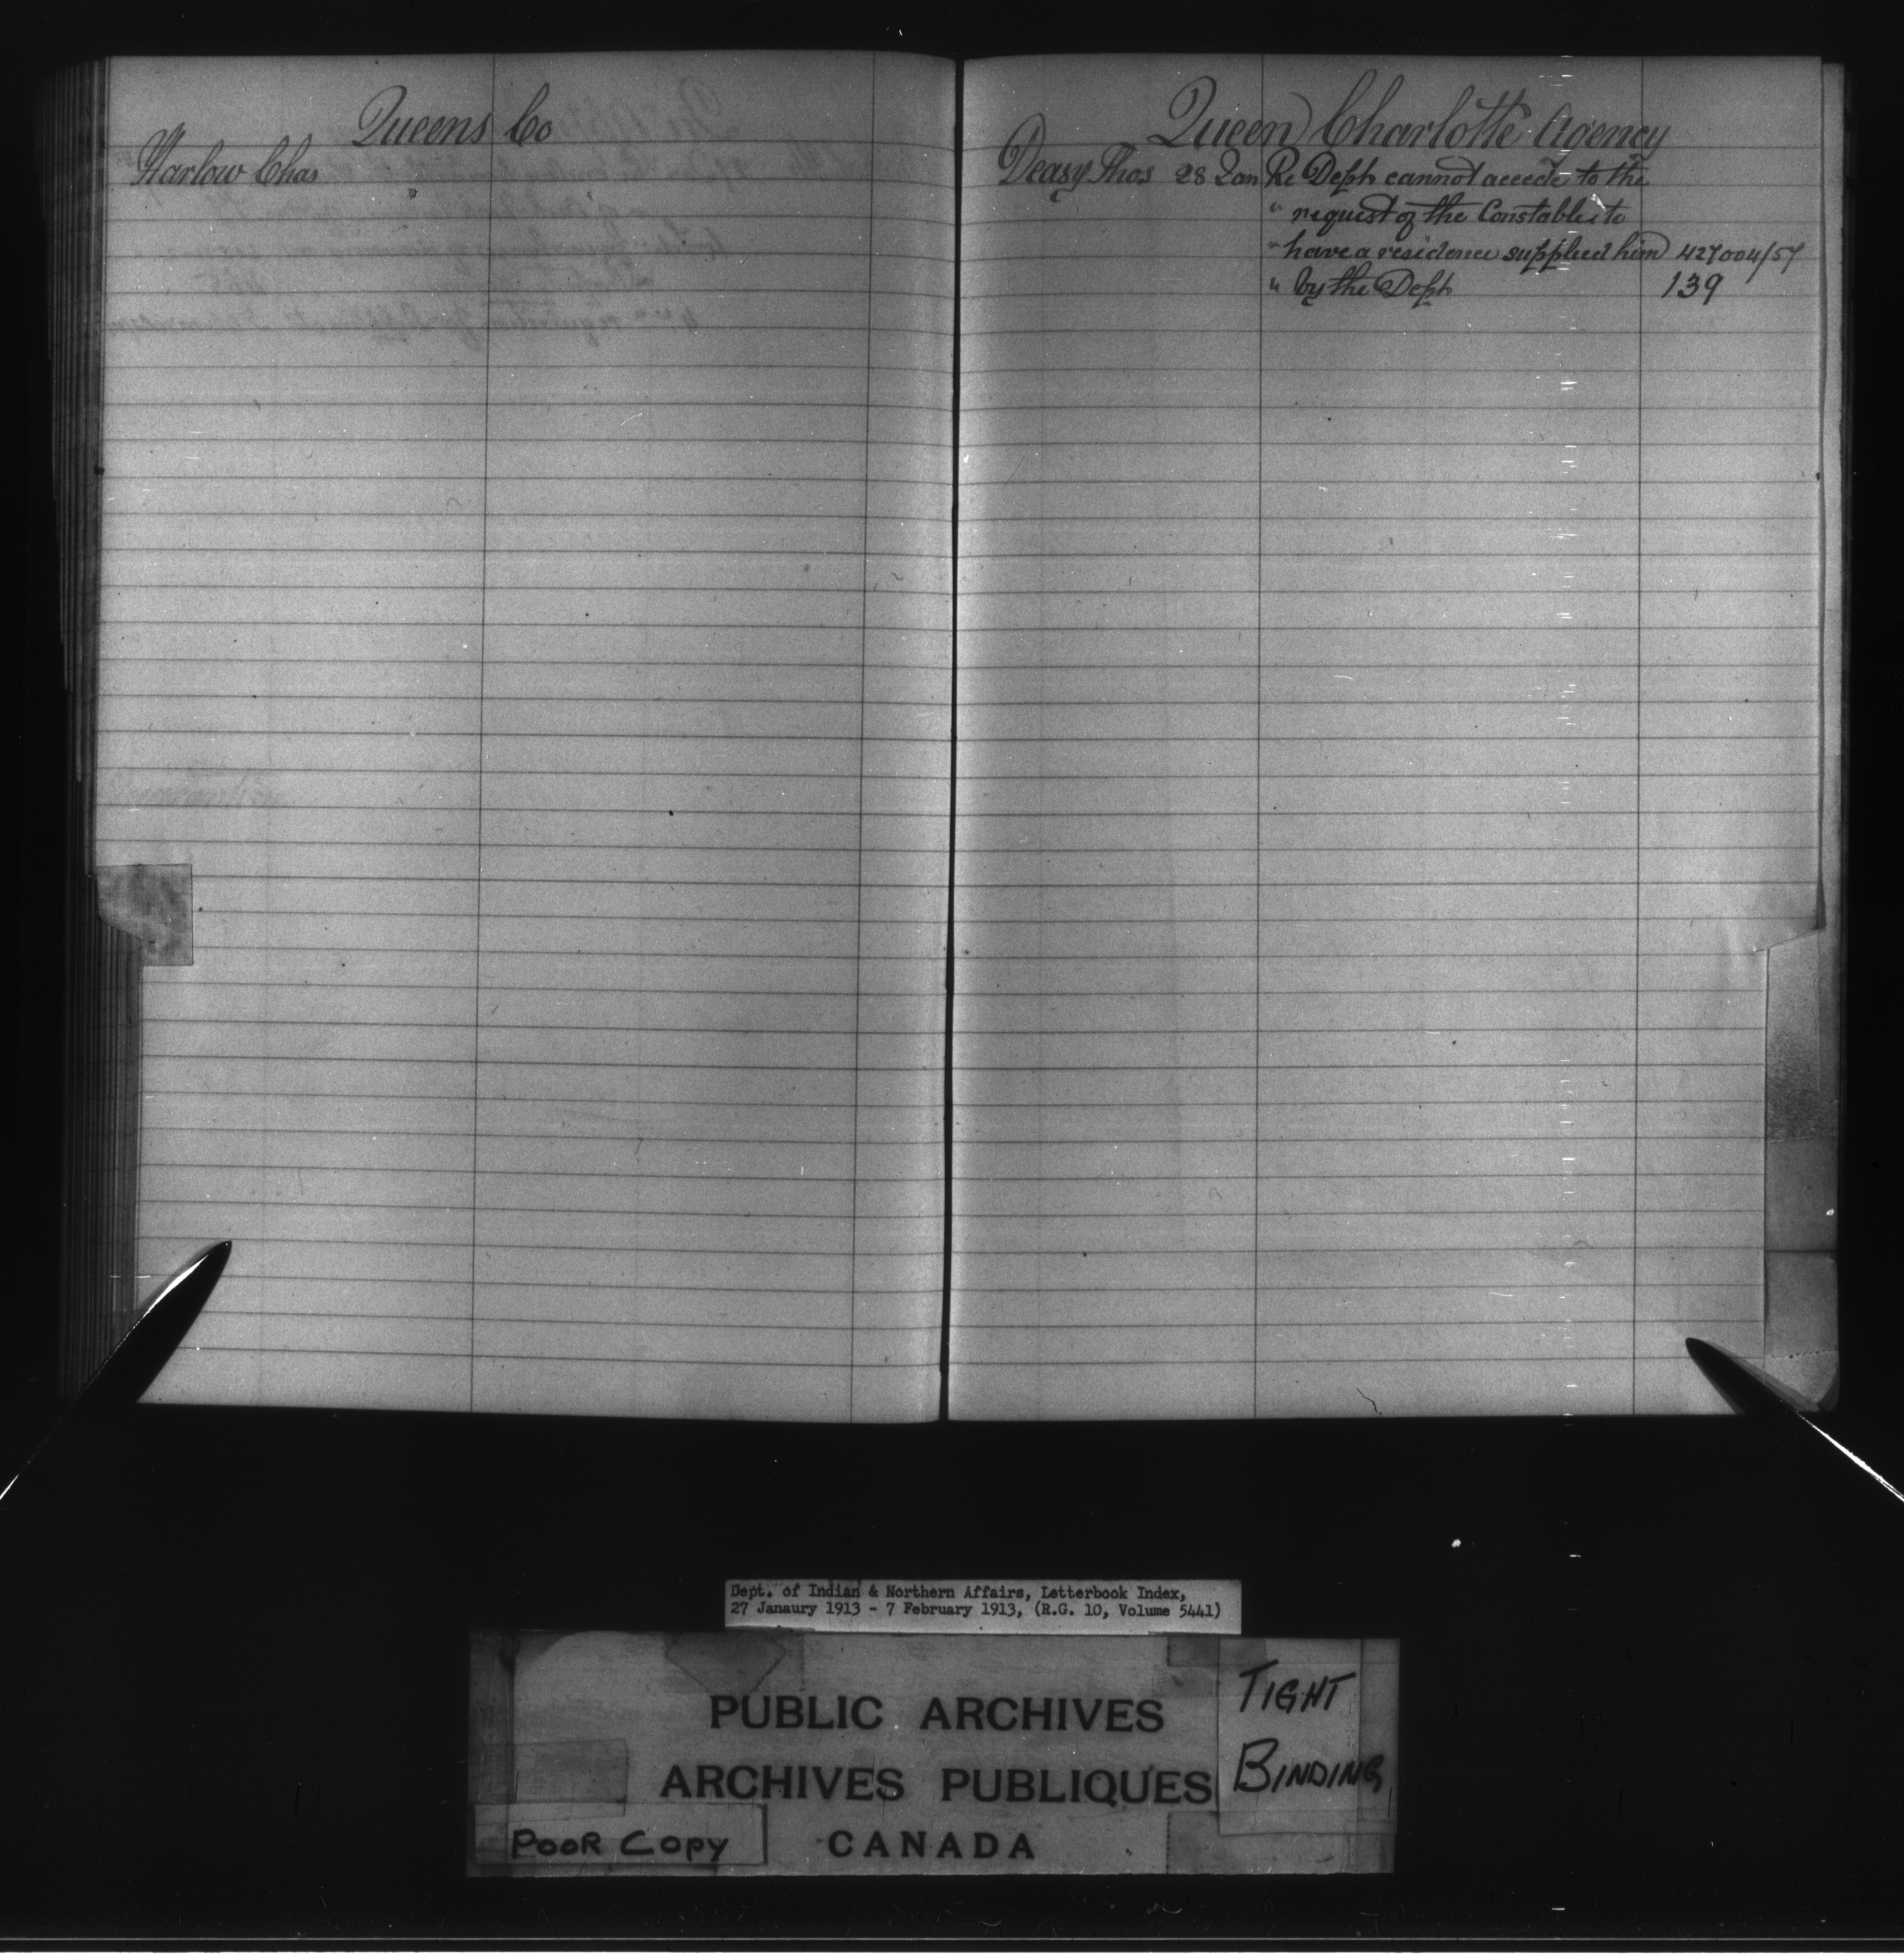 Queens Co
Harlow Chas
Queen Charlotte Agency
Deasy Thos 28 Jan Re Dept cannot accede to the
" request of the Constable to
" have a residence supplied him 427004/57
" by the Dept 139
Dept. of Indian & Northern Affairs, Letterbook Index,
27 Janaury 1913 - 7 February 1913, (R.G. 10, Volume 5441)
PUBLIC ARCHIVES
ARCHIVES PUBLIQUES
CANADA
TIGHT
BINDING
POOR COPY